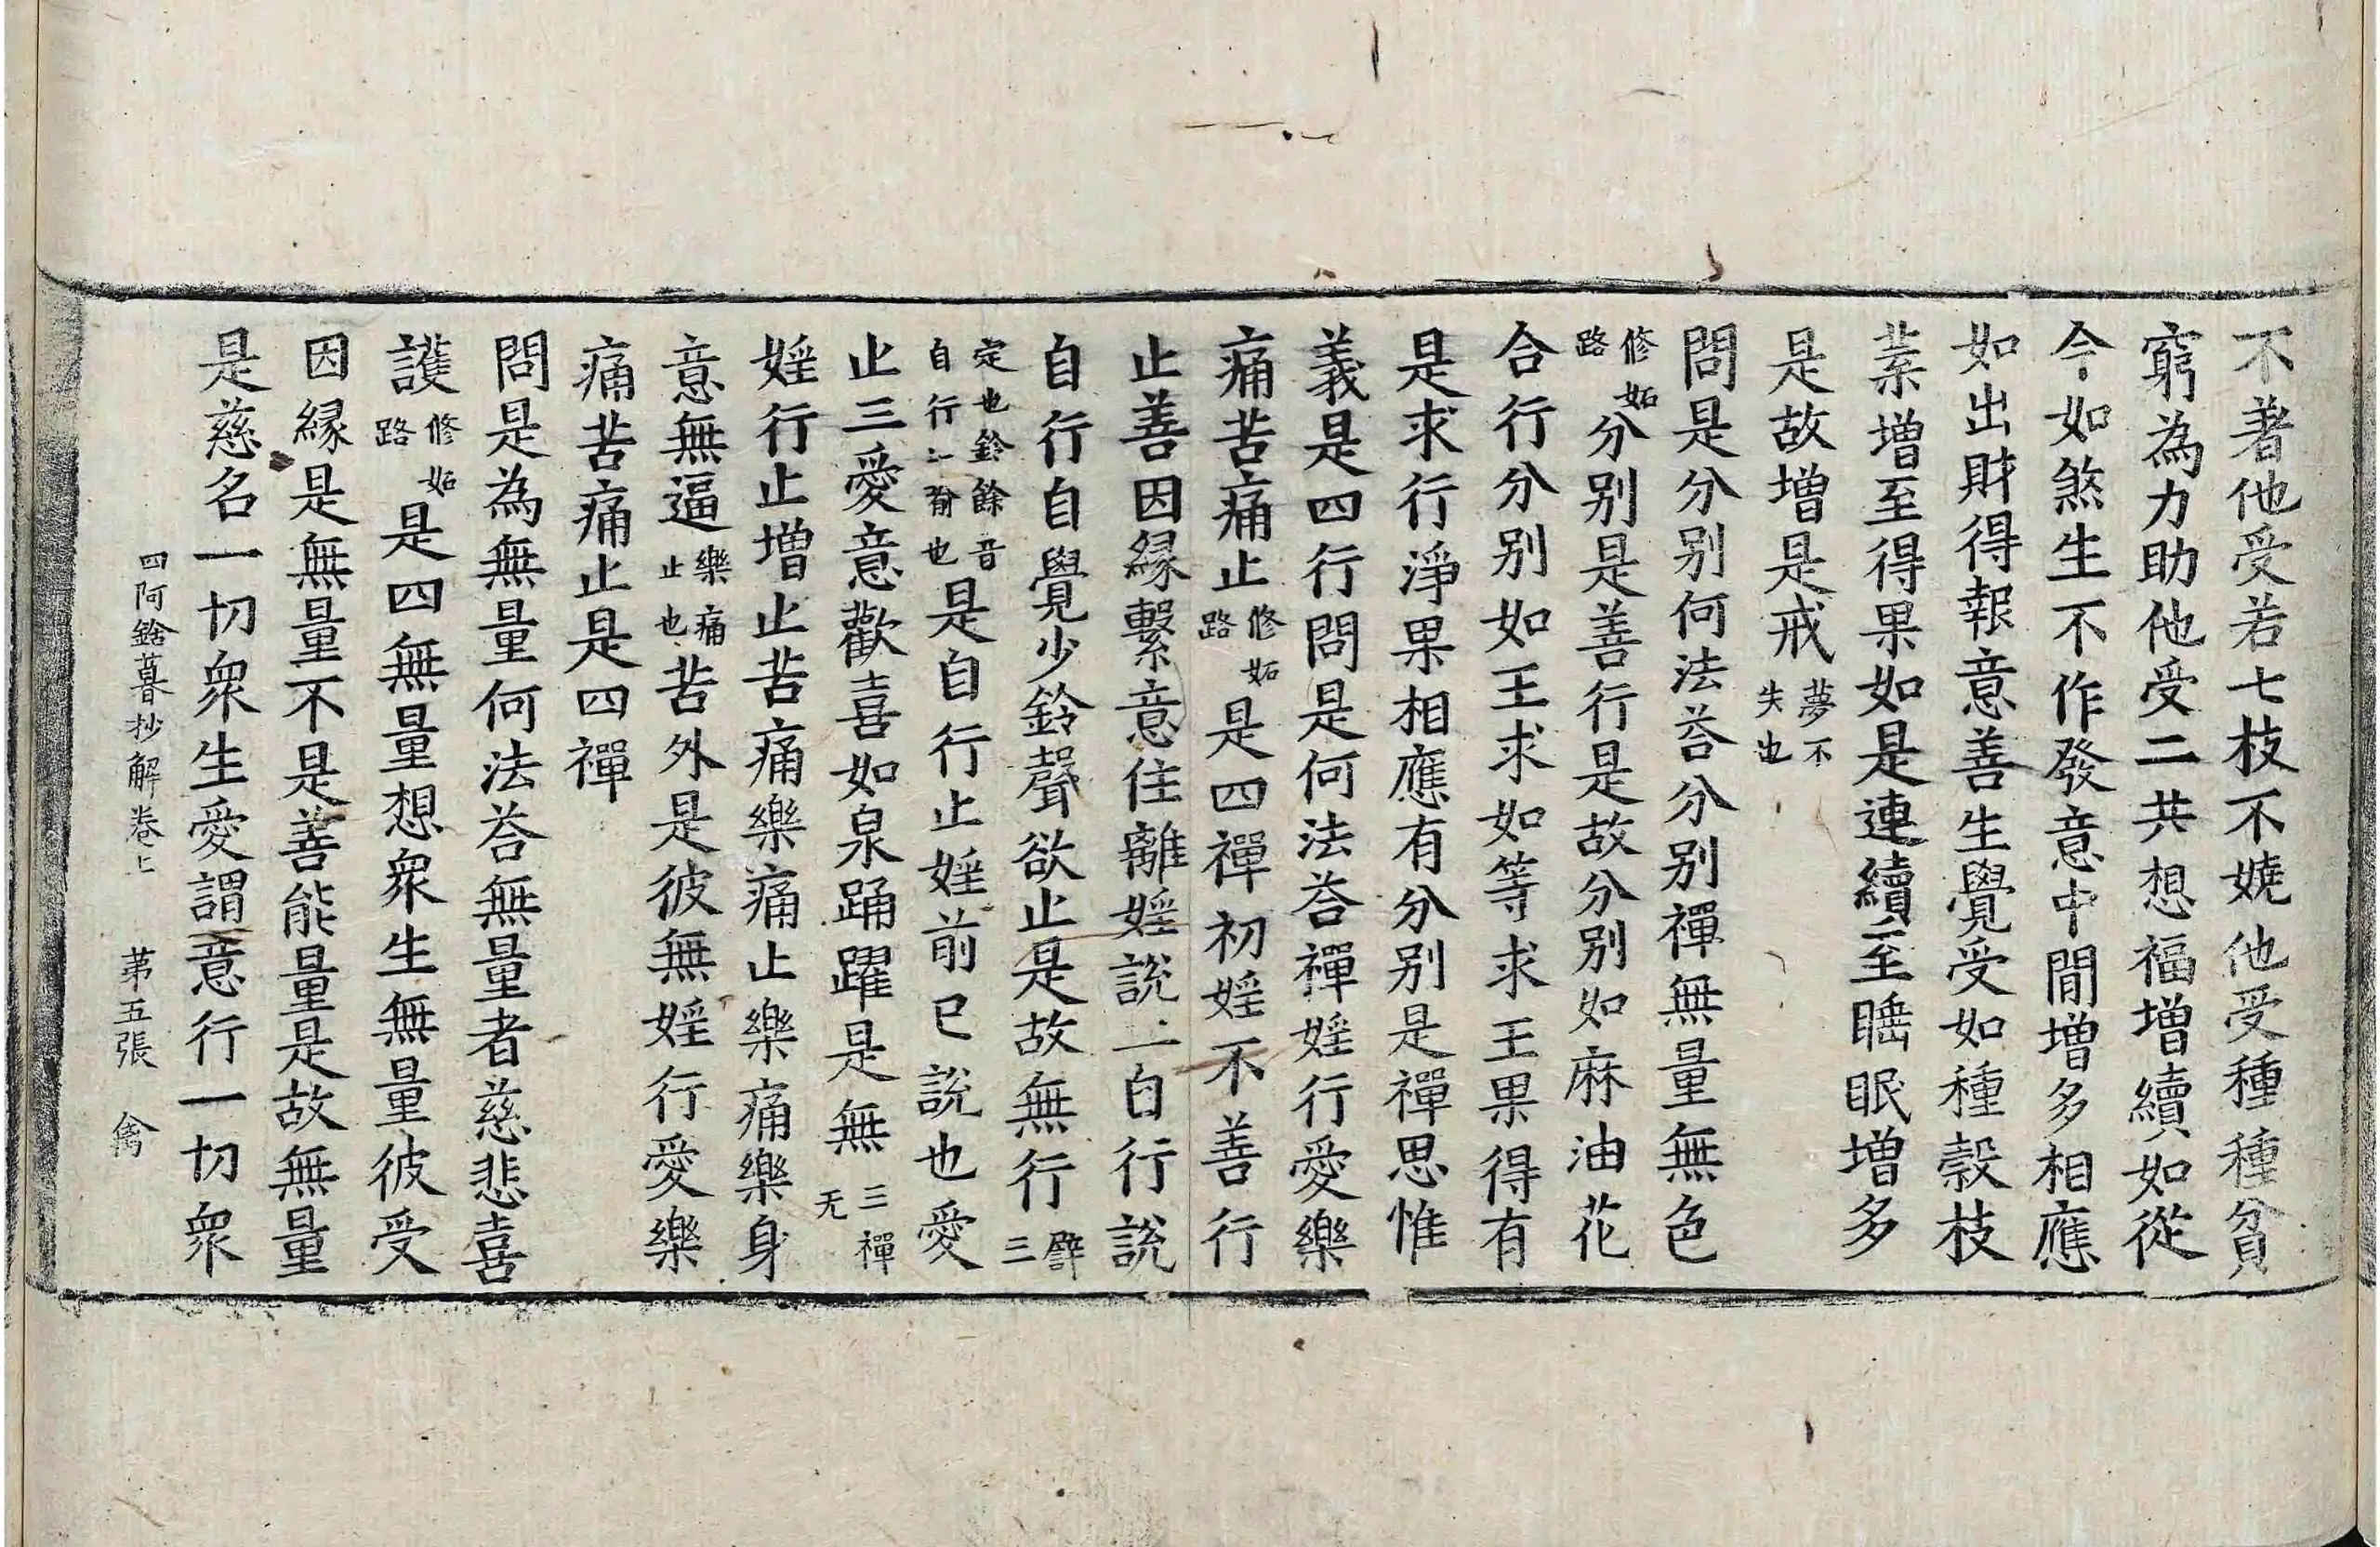 不著他受若七枝不嬈他受種種貧
窮為力助他受二共想福增續如從
今如煞生不作發意中間增多相應
如出財得報意善生覺受如種穀枝
葉增至得果如是連續至睡眠增多
是故增是戒夢不失也
問是分別何法荅分別禪無量無色
修妬路分別是善行是故分別如麻油花
合行分別如王求如等求王果得有
是求行淨果相應有分別是禪思惟
義是四行問是何法荅禪婬行愛樂
痛苦痛止修妬路是四禪初婬不善行
止善因緣繫意住離婬說二自行說
自行自覺少鈴聲欲止是故無行譬三
定也鈴餘音自行二喻也是自行止婬前已說也愛
止三愛意歡喜如泉踊躍是無三禪无
婬行止增止苦痛樂痛止樂痛樂身
意無逼樂痛止也苦外是彼無婬行愛樂
痛苦痛止是四禪
問是為無量何法荅無量者慈悲喜
護修妬路是四無量想衆生無量彼受
因緣是無量不是善能量是故無量
是慈名一切衆生愛謂意行一切衆
四阿鋡暮抄解卷上　第五張　禽